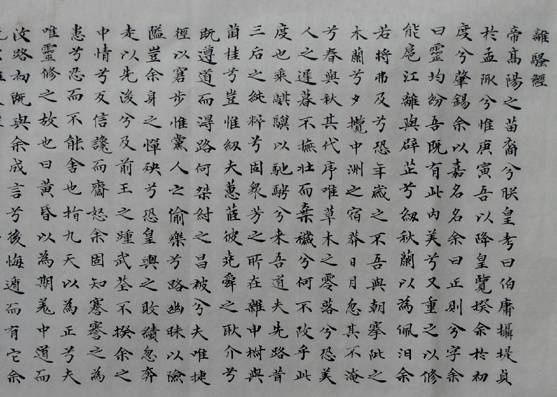 離騷經
帝高陽之苗裔兮朕皇考曰伯庸攝提貞
於孟陬兮惟庚寅吾以降皇覽揆余於初
度兮肇錫余以嘉名名余曰正則兮字余
曰靈均紛吾既有此內美兮又重之以修
能扈江離與辟芷兮紉秋蘭以為佩汩余
若將弗及兮恐年歲之不吾與朝搴阰之
木蘭兮夕攬中洲之宿莽日月忽其不淹
兮春與秋其代序唯草木之零落兮恐美
人之遲暮不撫壯而棄穢兮何不改乎此
度也乘騏驥以馳騁兮來吾道夫先路昔
三后之純粹兮固衆芳之所在雜申椒與
菌桂兮豈惟紉夫蕙茝彼堯舜之耿介兮
既遵道而得路何桀紂之昌被兮夫唯捷
徑以窘步惟黨人之偷樂兮路幽昧以險
隘豈余身之憚殃兮恐皇輿之敗績忽奔
走以先後兮及前王之踵武荃不揆余之
中情兮反信讒而齌怒余固知謇謇之為
患兮忍而不能舍也指九天以為正兮夫
唯靈修之故也曰黃昏以為期羌中道而
改路初既與余成言兮後悔遁而有它余